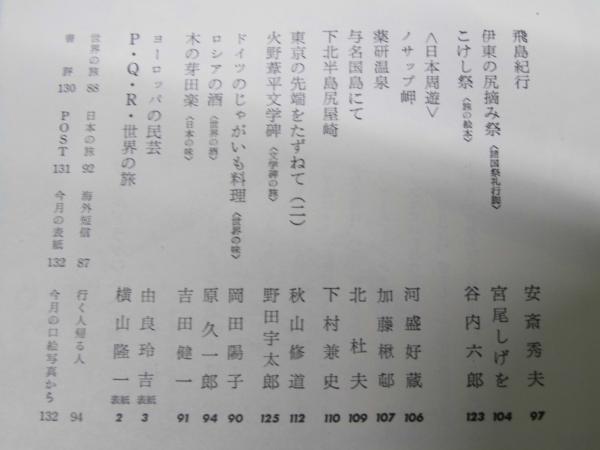 飛島紀行 安斎秀夫 97
伊東の尻摘み祭〈諸国祭礼行脚〉 宮尾しげを 104
こけし祭〈旅の絵本〉 谷内六郎 123
〈日本周遊〉
ノサップ岬 河盛好蔵 106
薬研温泉 加藤楸邨 107
与名国島にて 北杜夫 109
下北半島尻屋崎 下村兼史 110
東京の先端をたずねて（二） 秋山修道 112
火野葦平文学碑〈文学碑の旅〉 野田宇太郎 125
ドイツのじゃがいも料理〈世界の味〉 岡田陽子 90
ロシアの酒〈世界の酒〉 原久一郎 94
木の芽田楽〈日本の味〉 吉田健一 91
ヨーロッパの民芸 由良玲吉 表紙 3
P・Q・R・世界の旅 横山隆一 表紙 2
世界の旅 88 日本の旅 92 海外短信 87 行く人帰る人 94
書評 130 POST 131 今月の表紙 132 今月の口絵写真から 132